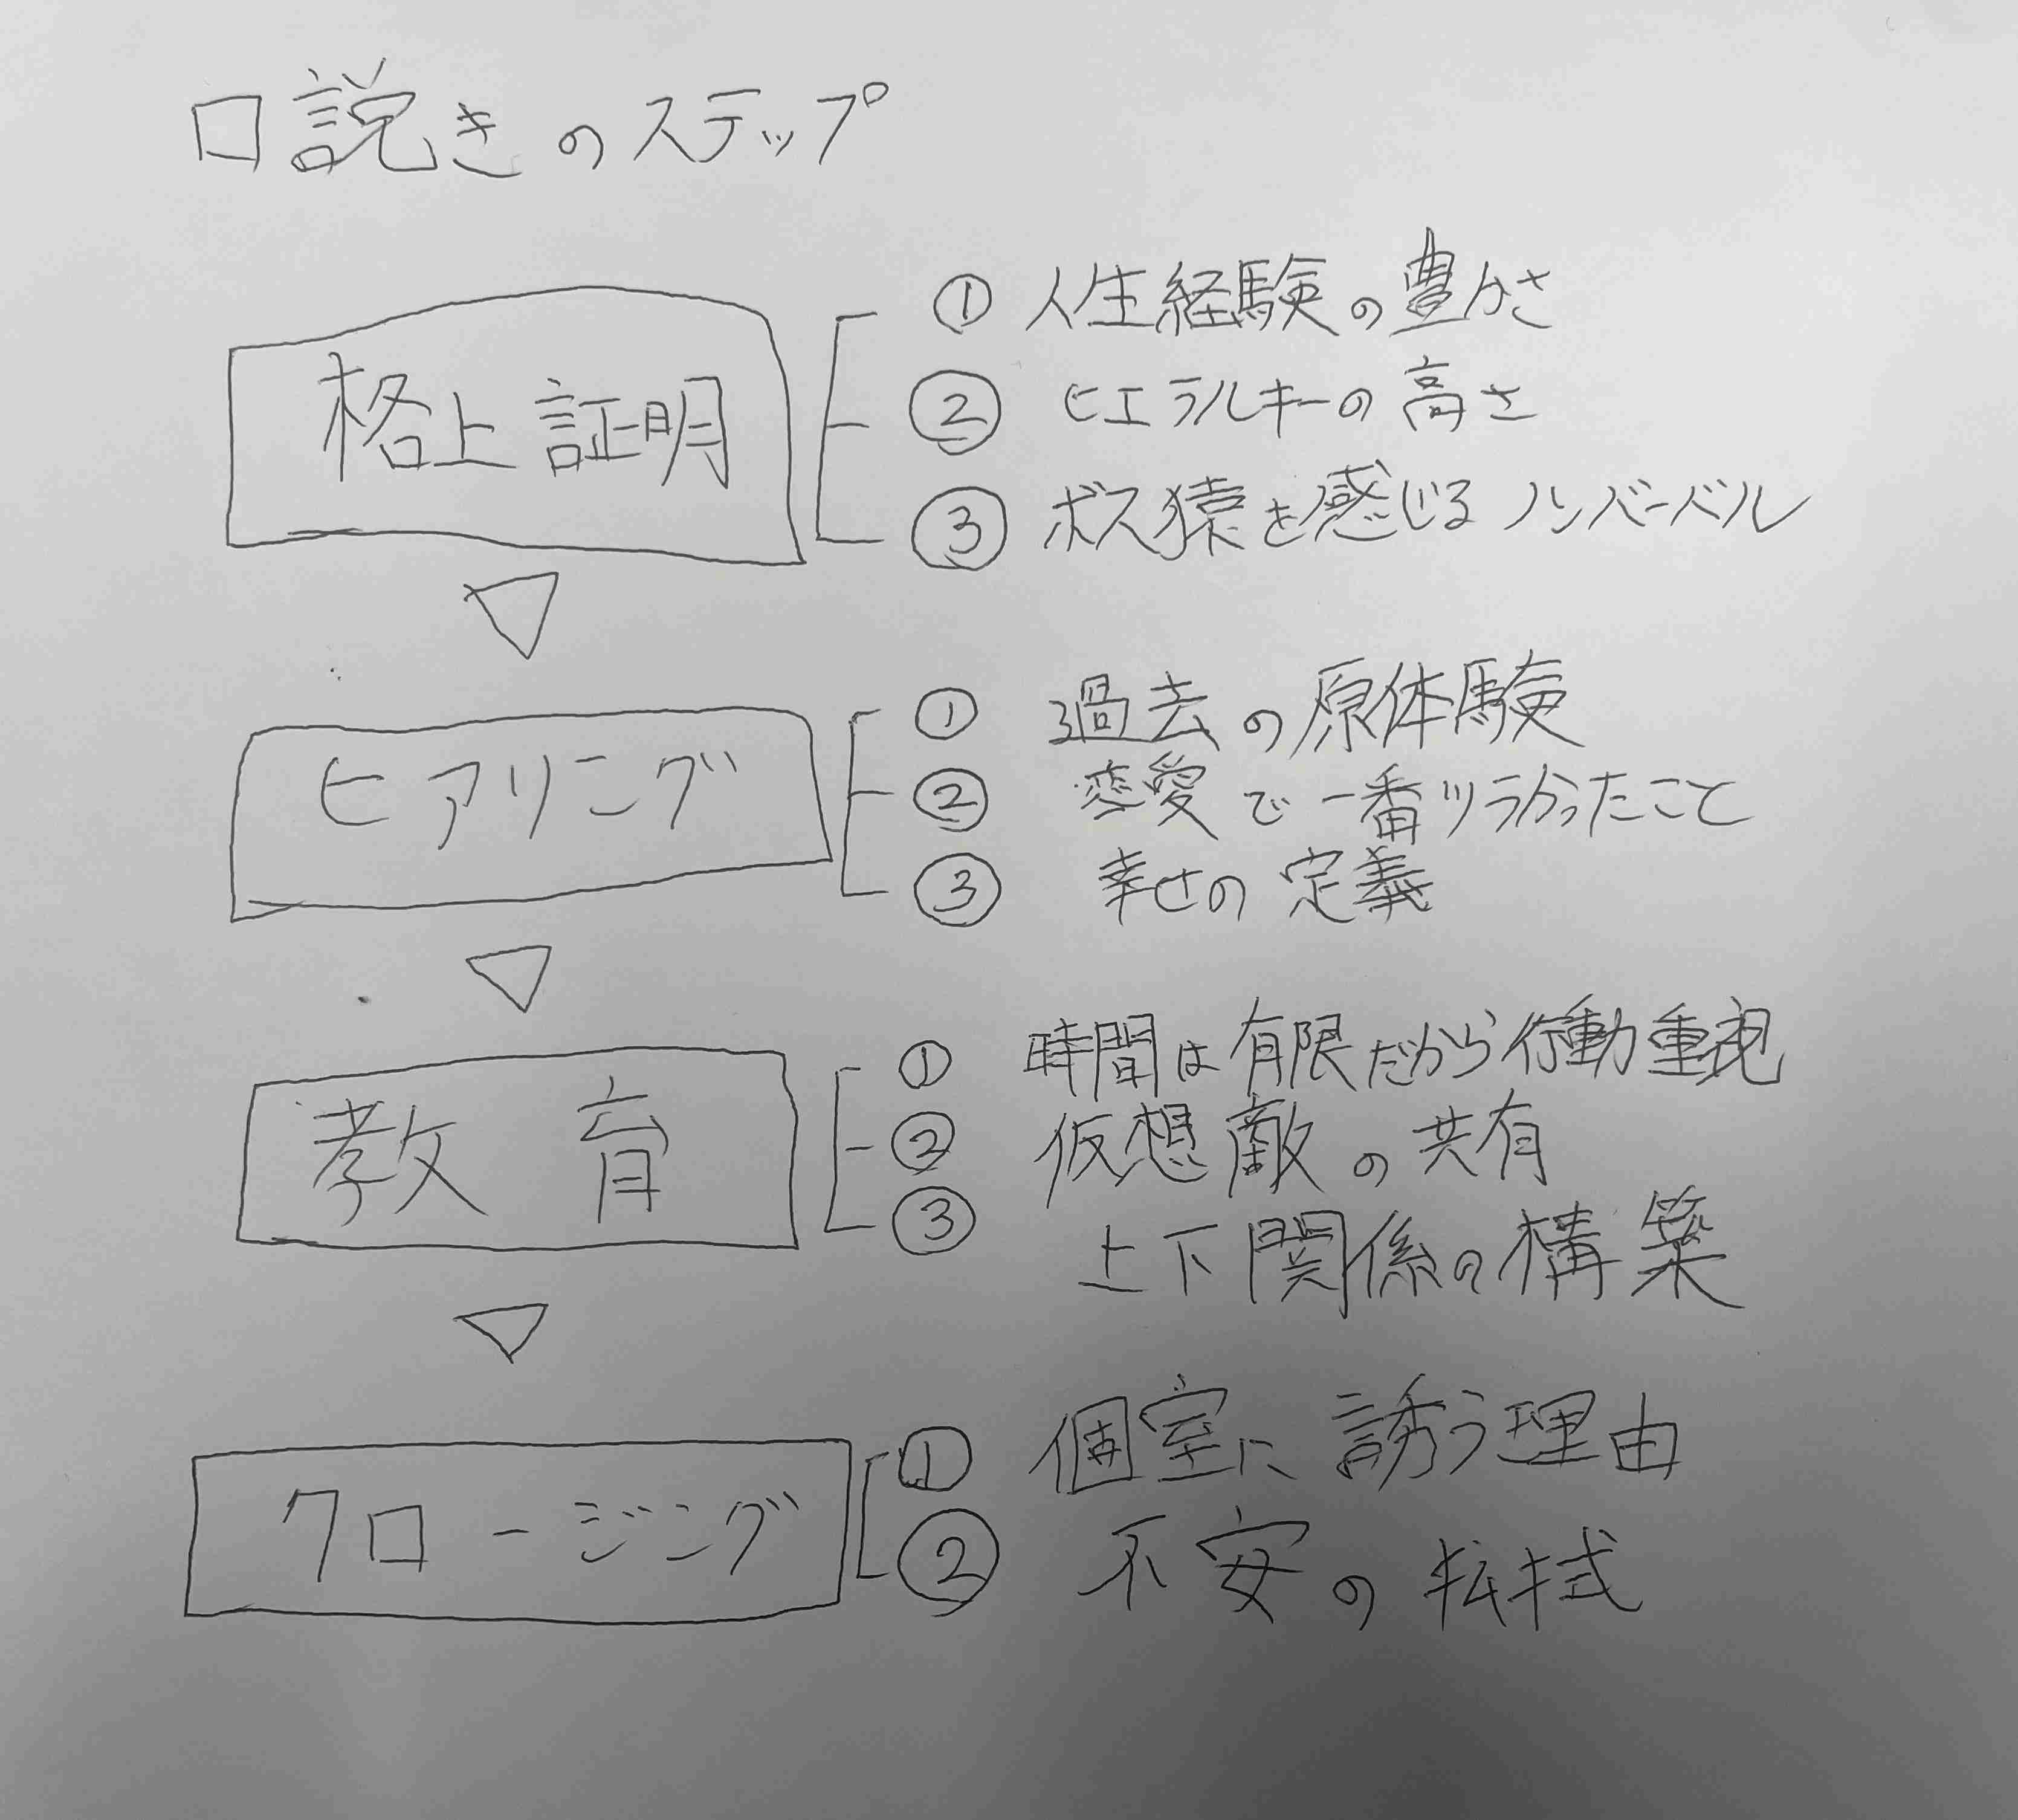 口説きのステップ
格上証明
① 人生経験の豊かさ
② ヒエラルキーの高さ
③ ボス猿を感じるノンバーバル
ヒアリング
① 過去の原体験
② 恋愛で一番ツラかったこと
③ 幸せの定義
教育
① 時間は有限だから行動重視
② 仮想敵の共有
③ 上下関係の構築
クロージング
① 個室に誘う理由
② 不安の払拭